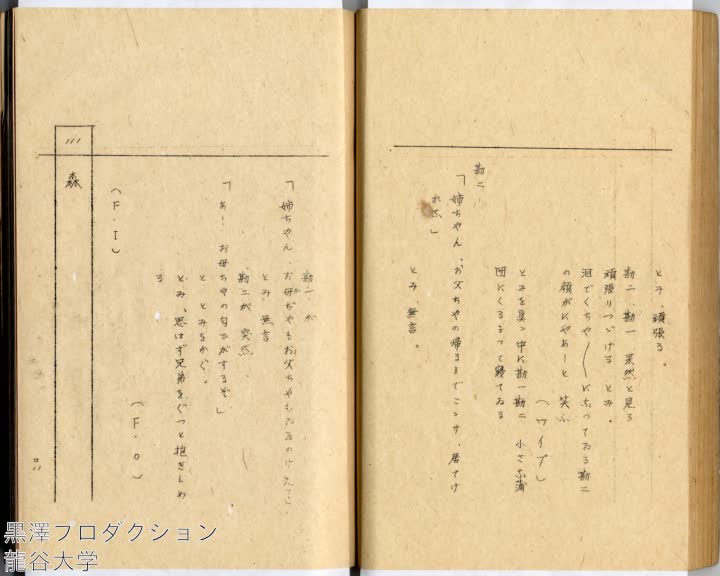 とみ、頑張る。
勘二、勘一 呆然と見る
頑張りつゞける とみ。
泪でくちや〱になつてゐる勘二
の顔がにやあーと 笑ふ
（ワイプ）
とみを真ン中に勘一勘二 小さな蒲
団にくるまつて寝てゐる
勘二
「姉ちやん、お父ちやの帰るまでこゝサ、居てけ
れな」
とみ、無言。
勘一が
「姉ちやん お母ちやもお父ちやも
とみ 無言
勘二が 突然
「あー お母ちやの匂ひがするぞ」
と とみをかぐ。
とみ、思はず兄弟をぐつと抱きしめ
る
（F・O）
（F・I）
森
黒澤プロダクション
龍谷大学